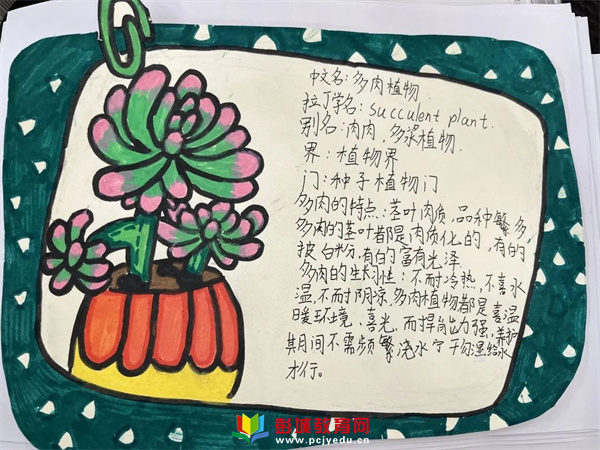 中文名:多肉植物
拉丁学名:succulent plant.
别名:肉肉,多浆植物.
界:植物界
门:种子植物门
多肉的特点:茎叶肉质,品种繁多,
多肉的茎叶都是肉质化的,有的
披白粉,有的富有光泽
多肉的生长习性:不耐冷热,不喜水
湿,不耐阴凉,多肉植物都是喜温
暖环境、喜光,而捍能力强,养护
其期间不需频繁浇水宁干勿湿给水
才行。
彭城教育网
www.pcjyedu.cn